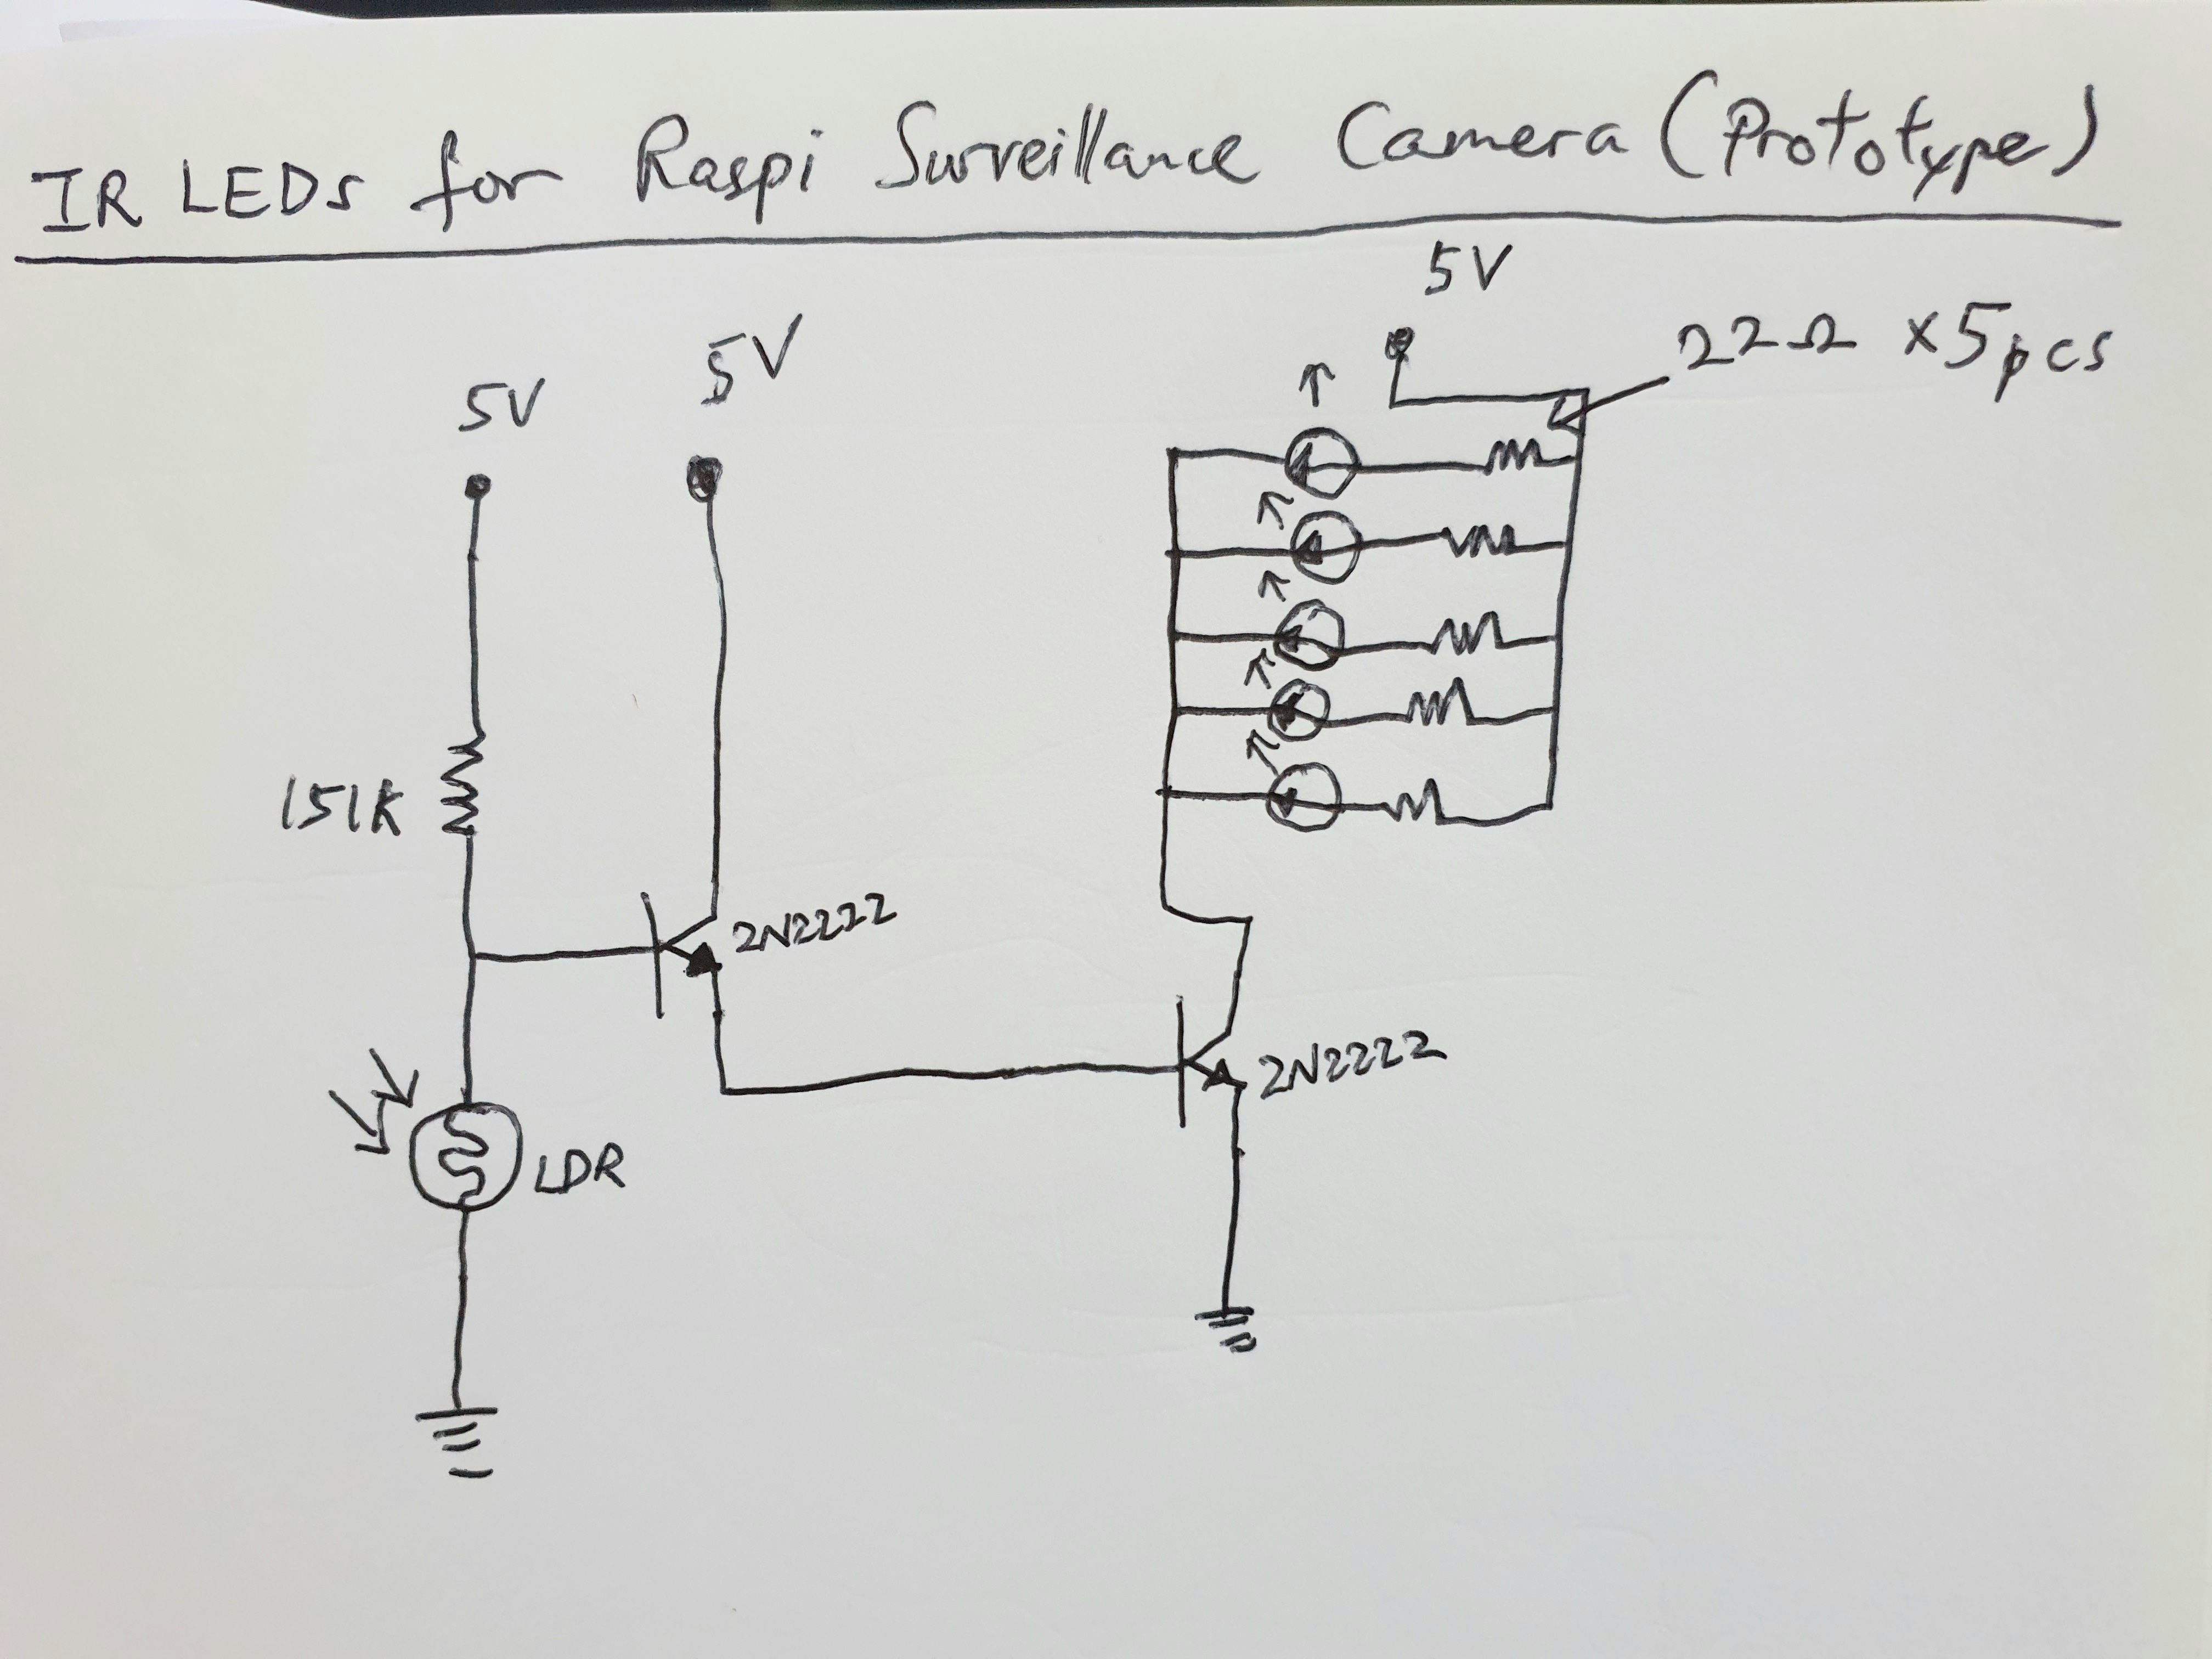 IR LEDs for Raspi Surveillance Camera (Prototype)
5V
22Ω x5pcs
5V
5V
151K
2N2222
2N2222
LDR